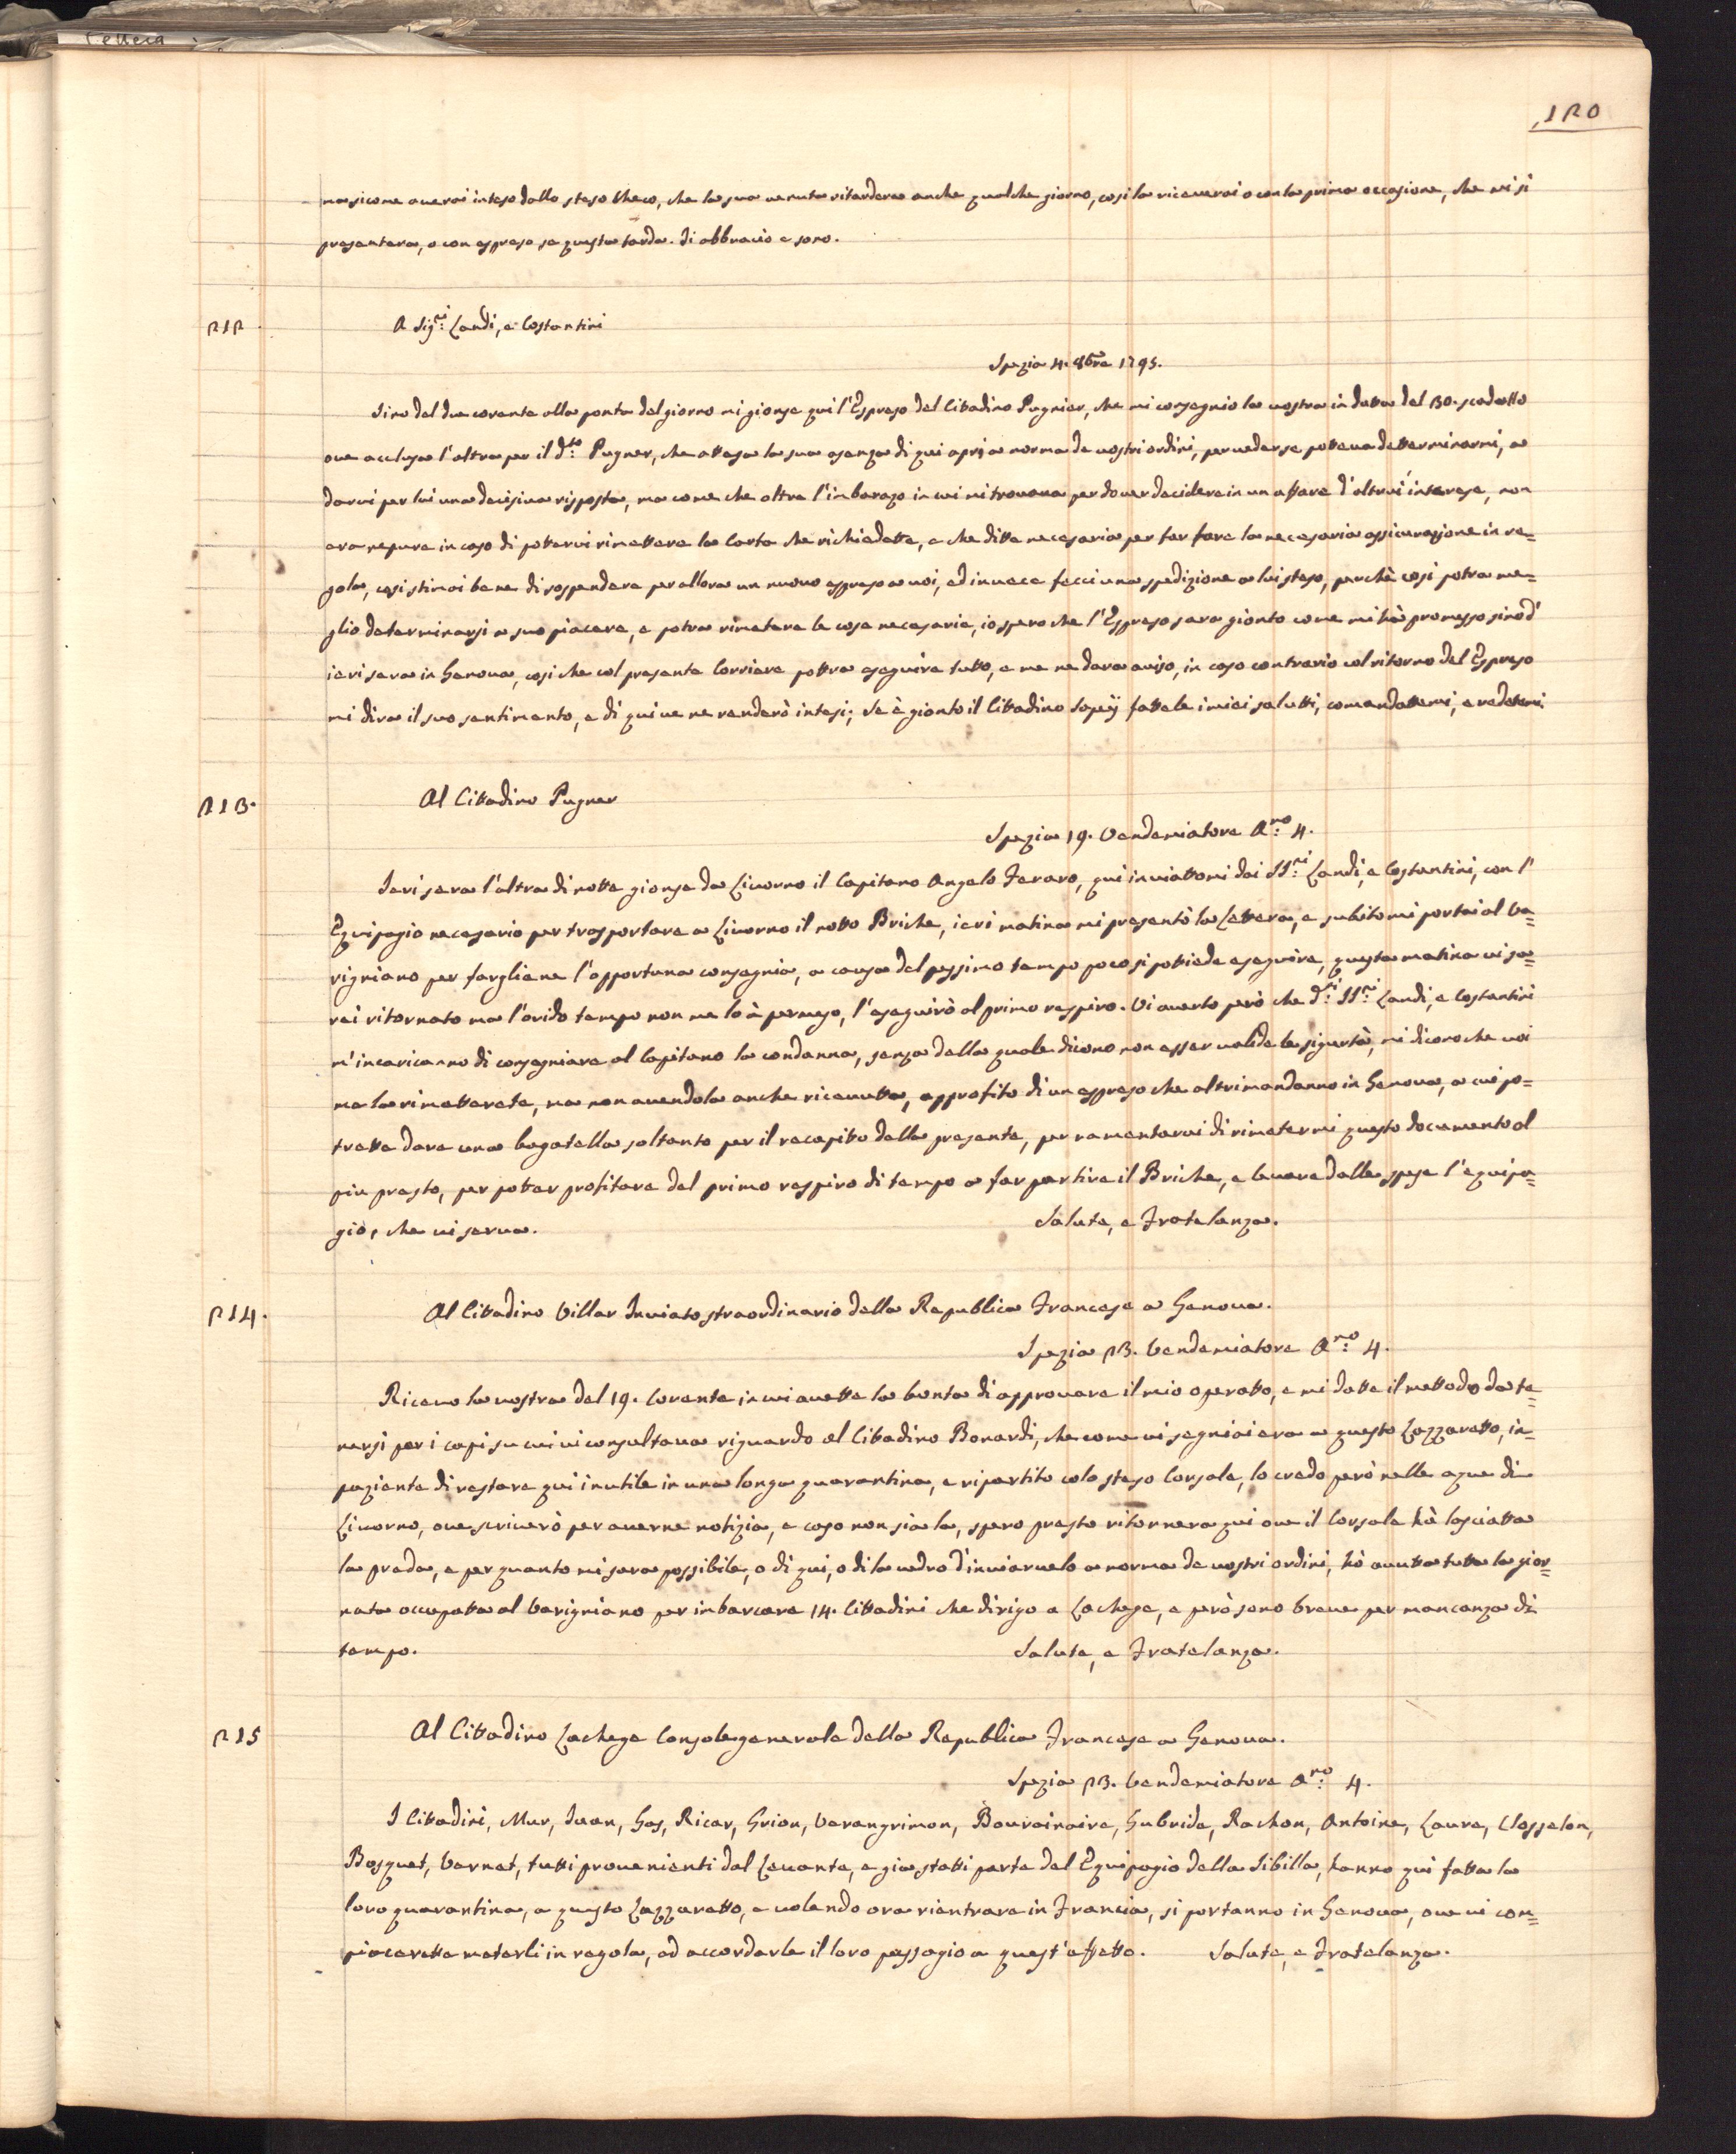 120
ma sicome averai inteso dallo steso Checo, che la sua venuta ritardera anche qualche giorno, cosi la riceverai o con la prima occasione, che mi si
presentera, o con espreso se questa tarda. Ti abbracio e sono.
212
A Sig:ri Landi, e Costantini
Spezia 4. 8bre 1795.
Sino del due corente alla ponta del giorno mi gionse qui l'Espreso del Cittadino Pugnier, che mi consegnio la vostra in datta del 30. scadutto
ove acclusa l'altra per il d:to Pugner, che attesa la sua asenza di qui aprj a norma de vostri ordini, per veder se potteva detterminarmi, a
darvi per lui una decisiva risposta, ma come che oltre l'imbarazo in cui mi trovava per dover decidere in un affare d'altrui interese, non
ero nepure in caso di pottervi rimettere la Carta che richiedette, e che ditte necesaria per far fare la necesaria assicurazione in re=
gola, cosi stimai bene di sospendere per allora un nuovo espreso a voi, ed in vece fecci una spedizione a lui steso, perchè cosi potra me=
glio determinarsi a suo piacere, e potra rimetere le cose necesarie, io spero che l'Espreso sara gionto come mi hà promesso sino d'
ieri sera in Genova, cosi che col presente Corriere pottra eseguire tutto, e me ne dara aviso, in caso contrario col ritorno del Espreso
mi dira il suo sentimento, e di qui ve ne renderò intesi; Se è gionto il Cittadino Sopeÿ fatele i miei salutti, comandattemi, e credetemi
213.
Al Cittadino Pugner
Spezia 19. Vendemiatore A:no 4.
Ieri sera l'altra di notte gionse da Livorno il Capitano Angelo Feraro, qui inviattomi dai SS:ri Landi, e Costantini, con l'
Equipagio necesario per trasportare a Livorno il notto Briche, ieri matina mi presentò la Lettera, e subito mi portai al Va=
rigniano per fargliene l'opportuna consegnia, a causa del pessimo tempo poco si pottiede eseguire, questa matina vi sa=
rei ritornato ma l'orido tempo non me lo à permeso, l'eseguirò al primo respiro. Vi averto però che d:ti SS:ri Landi, e Costantini
m'incaricanno di consegniare al Capitano la condanna, senza della quale dicono non esser valide le sigurtà, mi dicono che voi
me la rimetterete, ma non avendola anche ricevutta, approfito di un espreso che altri mandanno in Genova, a cui po=
trette dare una bagatella soltanto per il recapito della presente, per ramentarvi di rimetermi questo documento al
piu presto, per potter profitare del primo respiro di tempo a far partire il Briche, e levare dalle spese l'equipa=
gio, che vi serva. Salute, e Fratelanza.
214.
Al Cittadino Villar Inviato straordinario della Republica Francese a Genova.
Spezia 23. Vendemiatore A:no 4.
Ricevo la vostra del 19. Corente in cui avette la bonta di approvare il mio operatto, e mi datte il mettodo da te=
nersi per i capi su cui vi consultava riguardo al Cittadino Bonardi, che come vi segniai era a questo Lazzaretto, in=
paziente di restare qui inutile in una longa quarantina, e ripartito colo steso Corsale, lo credo però nelle aque di
Livorno, ove scriverò per averne notizia, e caso non sia la, spero presto ritornera qui ove il Corsale hà lasciatta
la preda, e per quanto mi sara possibile, o di qui, o di la vedro d'inviarvelo a norma de vostri ordini, hò avutta tutta la gior=
nata occupatta al Varigniano per imbarcare 14. Cittadini che dirigo a Lachese, e però sono breve per mancanza di
tempo. Salute, e Fratelanza.
215
Al Cittadino Lachege Console generale della Republica Francese a Genova.
Spezia 23. Vendemiatore A:no 4.
I Cittadini, Mur, Juan, Gas, Ricar, Grion, Varangrimon, Bouroinaire, Gubride, Rachon, Antoine, Laure, Closselon,
Bosquet, Vernet, tutti provenienti dal Levante, e gia statti parte del Equipagio della Sibilla, hanno qui fatta la
loro quarantina, a questo Lazzaretto, e volendo ora rientrare in Francia, si portanno in Genova, ove vi com=
piacerette meterli in regola, ed accordarle il loro passagio a quest'effetto. Salute, e Fratelanza.